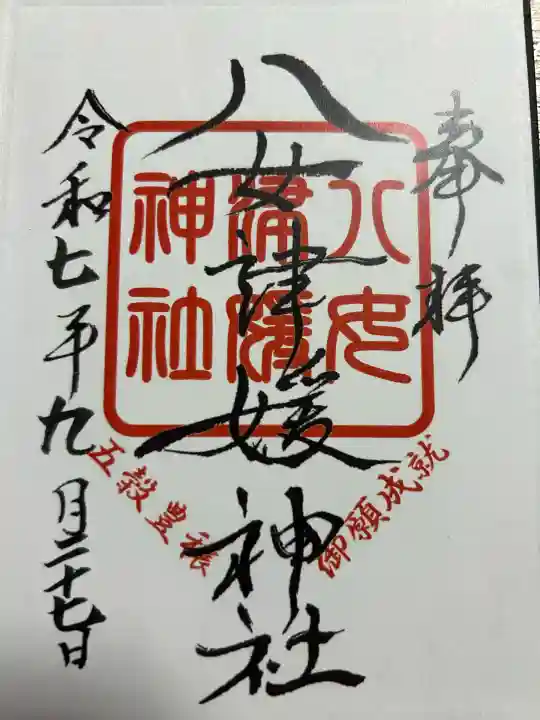 奉拝
八女津媛神社
八女
津媛
神社
御願成就
五穀豊穣
令和七年九月二十七日